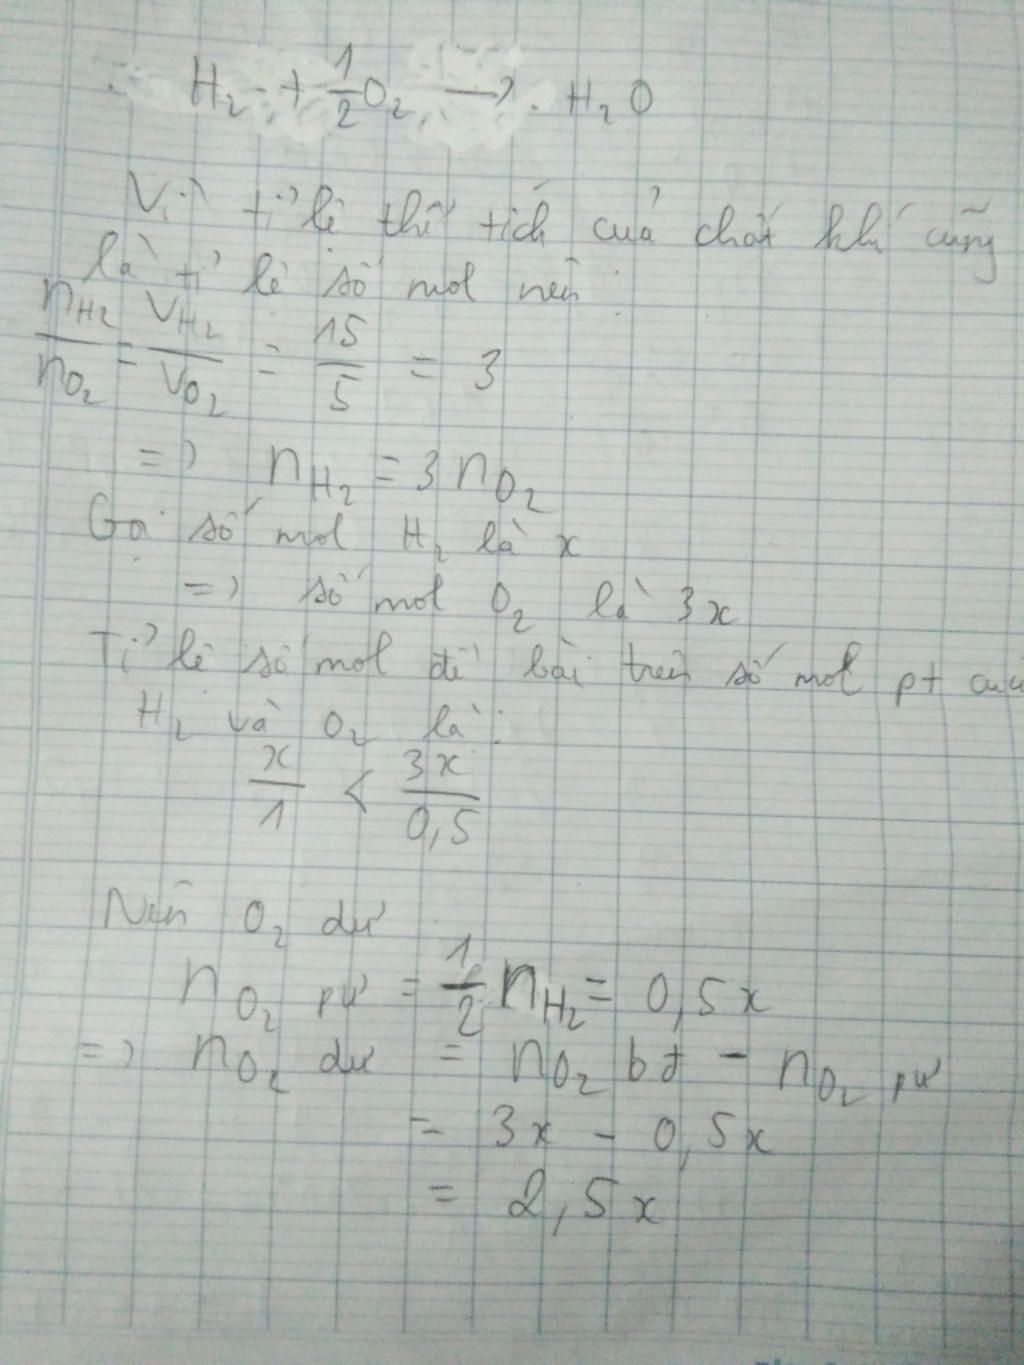 H₂ + 1/2 O₂ → H₂O
Vì tỉ lệ thể tích của chất khí cũng
là tỉ lệ số mol nên:
nH₂/nO₂ = VH₂/VO₂ = 15/5 = 3
=> nH₂ = 3 nO₂
Gọi số mol H₂ là x
=> số mol O₂ là 3x
Tỉ lệ số mol đề bài trên số mol pt của
H₂ và O₂ là:
x/1 < 3x/0,5
Nên O₂ dư
nO₂ pư = 1/2 nH₂ = 0,5x
=> nO₂ dư = nO₂ bđ - nO₂ pư
= 3x - 0,5x
= 2,5x